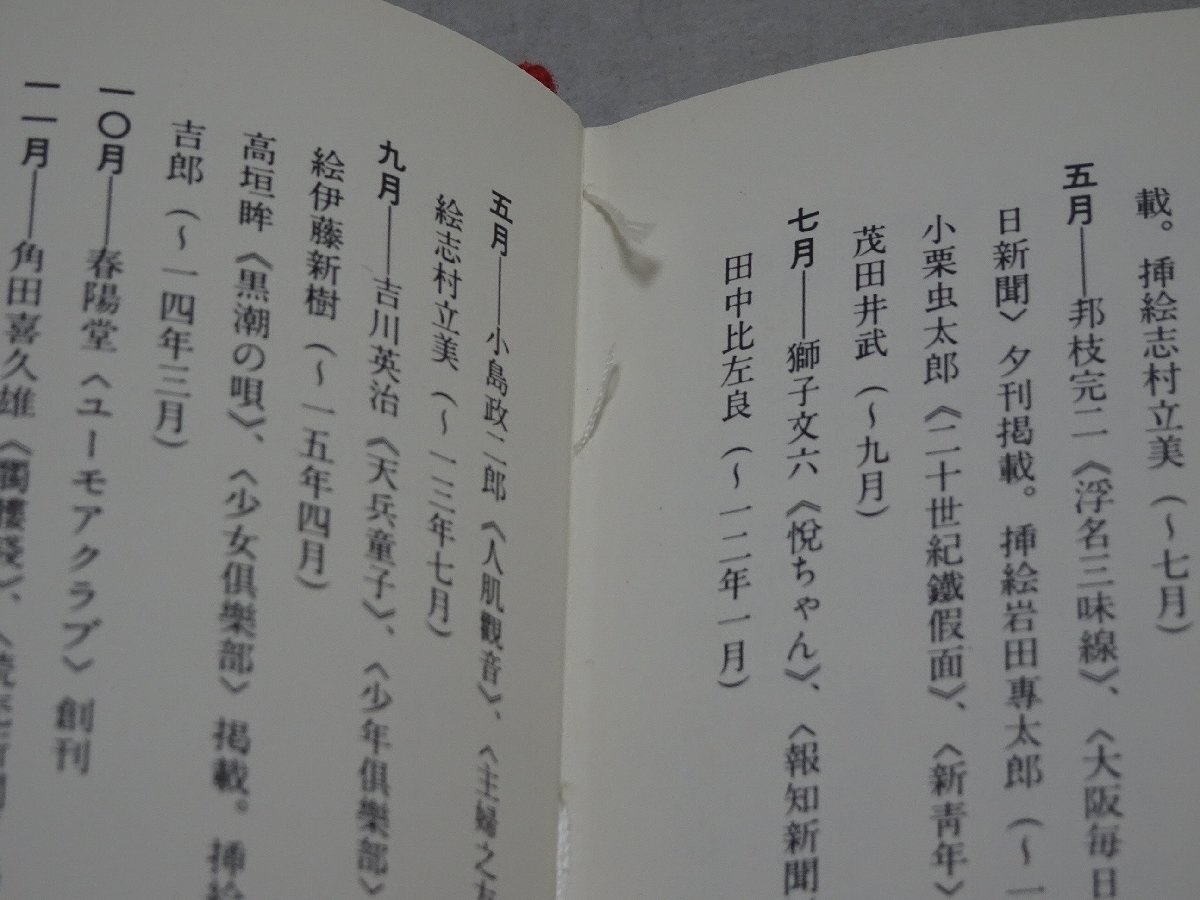 載。挿絵志村立美（～七月）
五月――邦枝完二《浮名三味線》、〈大阪毎日
日新聞〉夕刊掲載。挿絵岩田專太郎（～一
小栗虫太郎《二十世紀鐵假面》、〈新青年〉
茂田井武（～九月）
七月――獅子文六《悦ちゃん》、〈報知新聞
田中比左良（～一二年一月）
五月――小島政二郎《人肌觀音》、〈主婦之友
絵志村立美（～一三年七月）
九月――吉川英治《天兵童子》、〈少年俱樂部〉
絵伊藤新樹（～一五年四月）
高垣眸《黒潮の唄》、〈少女俱樂部〉掲載。挿絵
吉郎（～一四年三月）
一〇月――春陽堂〈ユーモアクラブ〉創刊
一一月――角田喜久雄《髑髏錢》、